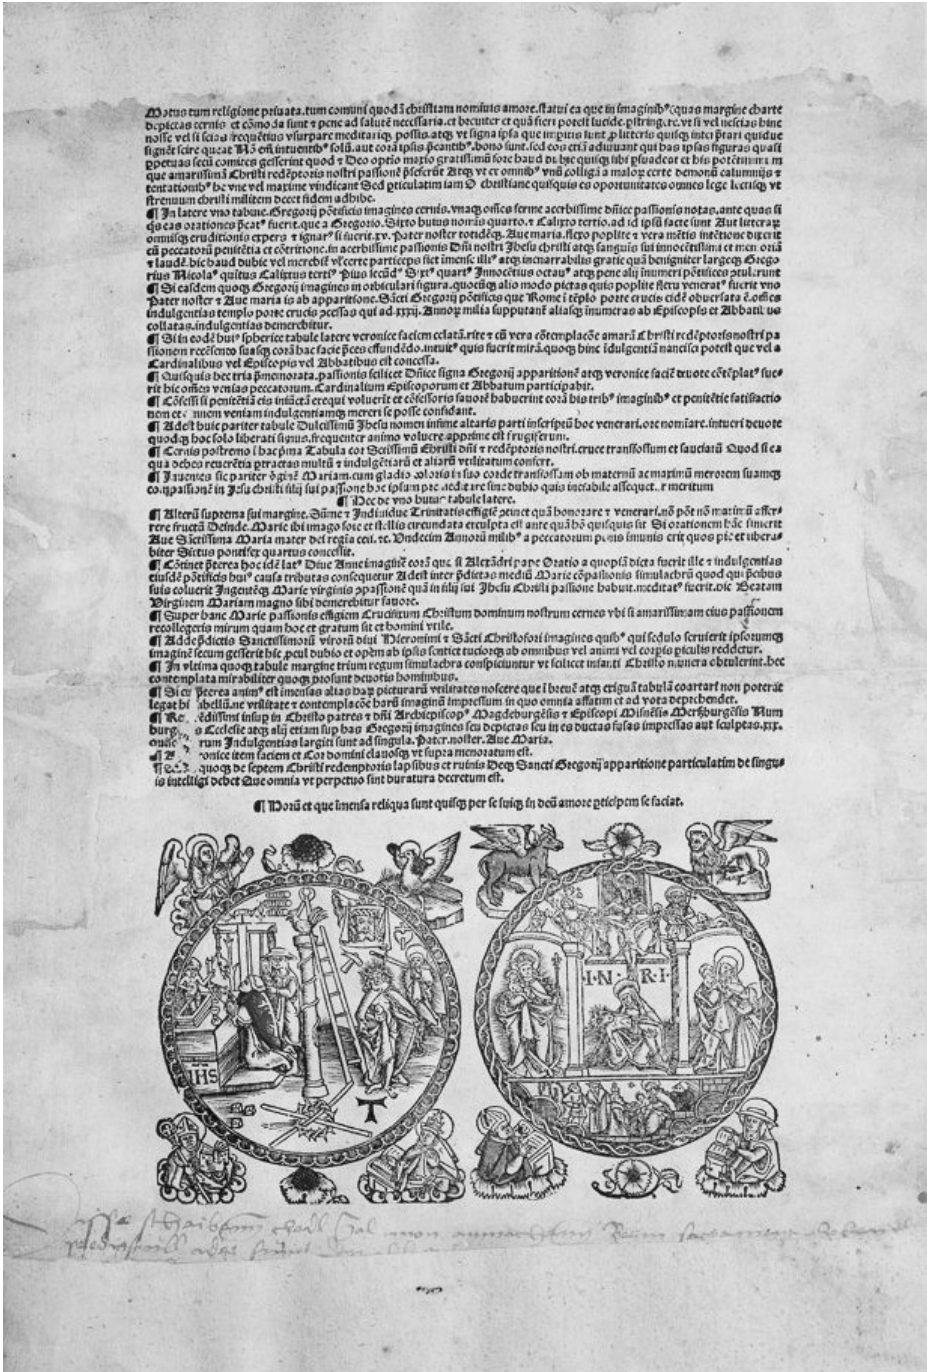 Motus tum religione priuata.tum comuni quodā christiani nominis amore.statui ea que in imaginibꝰ eqnas margine charte
depictas cernis et cōmoda sunt ⁊ pene ad salutē necessaria.et breuiter et quā fieri potest lucide.pstringere.vt si vel nescias hinc
nosse vel si scias frequentius vsurpare meditariqꝫ possis.atqꝫ vt signa ipsa que impictis sunt p litteris quisqꝫ inteṗtari quidue
signēt scire queat Nō em̄ intuentibꝰ solū.aut corā ipsis p̄cantibꝰ.bono sunt.sed eos etiā adiuuant qui has ipsas figuras quasi
ꝑpetuas secū comites gesserint quod ⁊ Deo optio maxio gratissimū fore haud
que amarissimā Christi redēptoris nostri passionē p̄seferūt Atqꝫ vt ex omnibꝰ vnū colligā a maloꝝ certe demonū calumnijs ⁊
tentationibꝰ he vne vel maxime vindicant Sed ꝑticulatim iam O christiane quisquis es oportunitates omnes lege lectisqꝫ vt
strenuum christi militem decet fidem adhibe.
¶ In latere vno tabule.Gregorij pōtificis imagines cernis.vnaqꝫ om̄es ferme acerbissime dn̄ice passionis notas.ante quas si
q̄s eas orationes p̄catꝰ fuerit.que a Gregorio.Sixto huius nomis quarto.⁊ Calixto tertio.ad id ipsū facte sunt Aut litteraꝝ
omnisqꝫ eruditionis expers ⁊ ignarꝰ si fuerit.xv.Pater noster totideqꝫ.Aue maria.flexo poplite ⁊ vera mētis intētione dixerit
cū peccatorū penitētia et cōtritione.in acerbissime passionis Dn̄i nostri Jhesu christi atqꝫ sanguis sui innocētissimi et memoriā
⁊ laudē.hic haud dubie vel merchiē vl certe particeps fiet imēse illiꝰ atqꝫ inenarrabilis gratie quā benigniter largeqꝫ Grego
rius Nicolaꝰ quītus Calixtus tertiꝰ Pius secūdꝰ Sixtꝰ quartꝰ Innocētius octauꝰ atqꝫ pene alij inumeri pōtifices ꝓtulerunt
¶ Si easdem quoqꝫ Gregorij imagines in orbiculari figura.quocūqꝫ alio modo pictas quis poplite flexo veneratꝰ fuerit vno
Pater noster ⁊ Aue maria is ab apparitione.Sācti Gregorij pōtificis que Rome ī tēplo porte crucis eidē obuersata ē.om̄es
indulgentias templo porte crucis ꝓcessas qui ad.xxxij.Annoꝝ milia supputant aliasqꝫ inumeras ab Episcopis et Abbatibus
collatas.indulgentias demerebitur.
¶ Si in eodē huiꝰ spherice tabule latere veronice faciem celatā.rite ⁊ cū vera cōtemplacōe amarā Christi redēptoris nostri pa
ssionem recēsento suasqꝫ corā hac facie p̄ces effundēdo.intuitꝰ quis fuerit mirā.quoqꝫ hinc īdulgentiā nancisci potest que vel a
Cardinalibus vel Episcopis vel Abbatibus est concessa.
¶ Quisquis hec tria p̄memorata.passionis scilicet Dn̄ice signa Gregorij apparitionē atqꝫ veronice faciē deuote cōtēplatꝰ fue-
rit hic om̄es venias peccatorum.Cardinalium Episcoporum et Abbatum participabit.
¶ Cōfessi si penitētiā eis iniūctā exequi voluerīt et cōfessoris fauorē habuerint corā his tribꝰ imaginibꝰ et penitētie satisfactio
nem et omnem veniam indulgentiamqꝫ mereri se posse confidant.
¶ Adest huic pariter tabule Dulcissimū Jhesu nomen infime altaris parti inscriptū hoc venerari.ore nomīare.intueri deuote
quodqꝫ hoc solo liberati simus.frequenter animo voluere apprime est frugiferum.
¶ Cernis postremo ī hac p̄ma Tabula cor Scissimū Christi dn̄i ⁊ redēptoris nostri.cruce transfossum et sauciatū Quod si ea
qua debes reuerētia ptractas multū ⁊ indulgētiarū et aliarū vtilitatum confert.
¶ Inuenies sic pariter v̄ginē Mariam.cum gladio doloris in suo corde transfossam ob maternū ac maximū merorem suamqꝫ
compassionē in Jesu christi filij sui passione hoc ipsum p̄te meditare sine dubio quis inefabile assequetur meritum
¶ Hec de vno huius tabule latere.
¶ Alterū suprema sui margine.Sūme ⁊ Indiuidue Trinitatis effigiē ꝓtinet quā honorare ⁊ venerari.nō pōt nō maximū affer-
rere fructū Deinde.Marie ibi imago sole et stellis circundata exculpta est ante quā hō quisquis sit Si orationem hāc finierit
Aue Sāctissima Maria mater dei regīa celi.⁊c.Vndecim Annorū milibꝰ a peccatorum penis imunis erit quos pie et libera-
biter Sixtus pontifex quartus concessit.
¶ Cōtinet p̄terea hoc idē latꝰ Diue Anne imaginē corā que si Alexādri pape Oratio a quopiā dicta fuerit ille ⁊ indulgentias
eiusdē pōtificis huiꝰ causa tributas consequetur Adest inter p̄dictas mediū Marie cōpassionis simulachrū quod qui p̄cibus
suis coluerit Ingentēqꝫ Marie virginis ꝓpassionē quā in filij sui Jhesu Christi passione habuit.meditatꝰ fuerit.hic Beatam
Virginem Mariam magno sibi demerebitur fauore.
¶ Super hanc Marie passionis effigiem Crucifixum Christum dominum nostrum cernes vbi si amarissimam eius passionem
recollegeris mirum quam hoc et gratum sit et homini vtile.
¶ Adde p̄dictis Sanctissimorū virorū diui Hieronimi ⁊ Sācti Christofori imagines quibꝰ qui sedulo seruierit ipsorumqꝫ
imaginē secum gesserit hic ꝓcul dubio et opem ab ipsis sentiet tuciorqꝫ ab omnibus vel animi vel corpis ꝑiculis reddetur.
¶ In vltima quoqꝫ tabule margine trium regum simulachra conspiciuntur vt scilicet infanti Christo munera obtulerint.hec
contemplata mirabiliter quoqꝫ prosunt deuotis hominibus.
¶ Si cui p̄terea animꝰ est imensas alias haꝝ picturarū vtilitates noscere que ī breuē atqꝫ exiguā tabulā coartari non poterāt
legat libellū.ne vtilitate ⁊ contemplacōe harū imaginū impressum in quo omnia affatim et ad vota deprehendet.
¶ Reuerēdissimi insuꝑ in Christo patres ⁊ dn̄i Archiepiscopꝰ Magdeburgēsis ⁊ Episcopi Misnēsis Merßburgēsis Num
burgēsis Ecclesie atqꝫ alij etiam sup has Gregorij imagines seu depictas seu in es ductas fusas impressas aut sculptas.xxx.
rum Indulgentias largiti sunt ad singula.Pater.noster.Aue Maria.
¶ Veronice item faciem et Cor domini clauosqꝫ vt supra memoratum est.
¶ quoqꝫ de septem Christi redemptoris lapsibus et ruinis Deqꝫ Sancti Gregorij apparitione particulatim de singu-
is intelligi debet Que omnia vt perpetuo sint duratura decretum est.
¶ Horū et que īmensa reliqua sunt quisqꝫ per se suisqꝫ in deū amore ꝑticipem se faciat.
I·N·R·I·
IHS